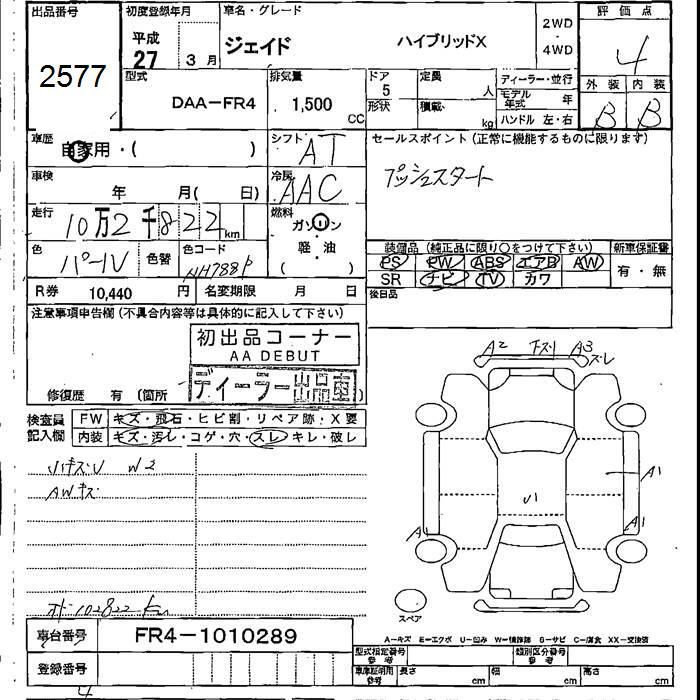 出品番号 初度登録年月 車名・グレード 2WD・4WD 評価点
2577 平成27 3月 ジェイド ハイブリッドX 4
型式 DAA-FR4 排気量 1,500 CC
ドア 5 定員 人 ディーラー・並行
外装 内装
形状 積載 kg モデル年式 年
ハンドル 左・右 B B
車歴 自家用・( ) シフト AT
セールスポイント(正常に機能するものに限ります)
プッシュスタート
車検 年 月( 日) 冷房 AAC
走行 10万2千822km 燃料 ガソリン 軽・油 ( )
色 パール 色替 色コード NH788P
装備品(純正品に限り○をつけて下さい) 新車保証書
PS PW ABS エアB AW 有・無
SR ナビ TV カワ
R券 10,440 円 名変期限 月 日
後日品
注意事項申告欄(不具合内容等は具体的に記入して下さい)
初出品コーナー
AA DEBUT
ディーラー出品車
修復歴 有(箇所 )
検査員記入欄 FW キズ・飛石・ヒビ割・リペア跡・X要
内装 キズ・汚レ・コゲ・穴・スレ・キレ・破レ
W2
AWキズ
A2 下スリ A3 スレ
A1
A1 A1
スペア
車台番号 FR4-1010289
登録番号
4
A-キズ E-エクボ U-凹み W-補修跡 S-サビ C-腐食 XX-交換済
型式指定番号 参考 類別区分番号 参考
車庫証明用 参考 長さ cm 幅 cm 高さ cm